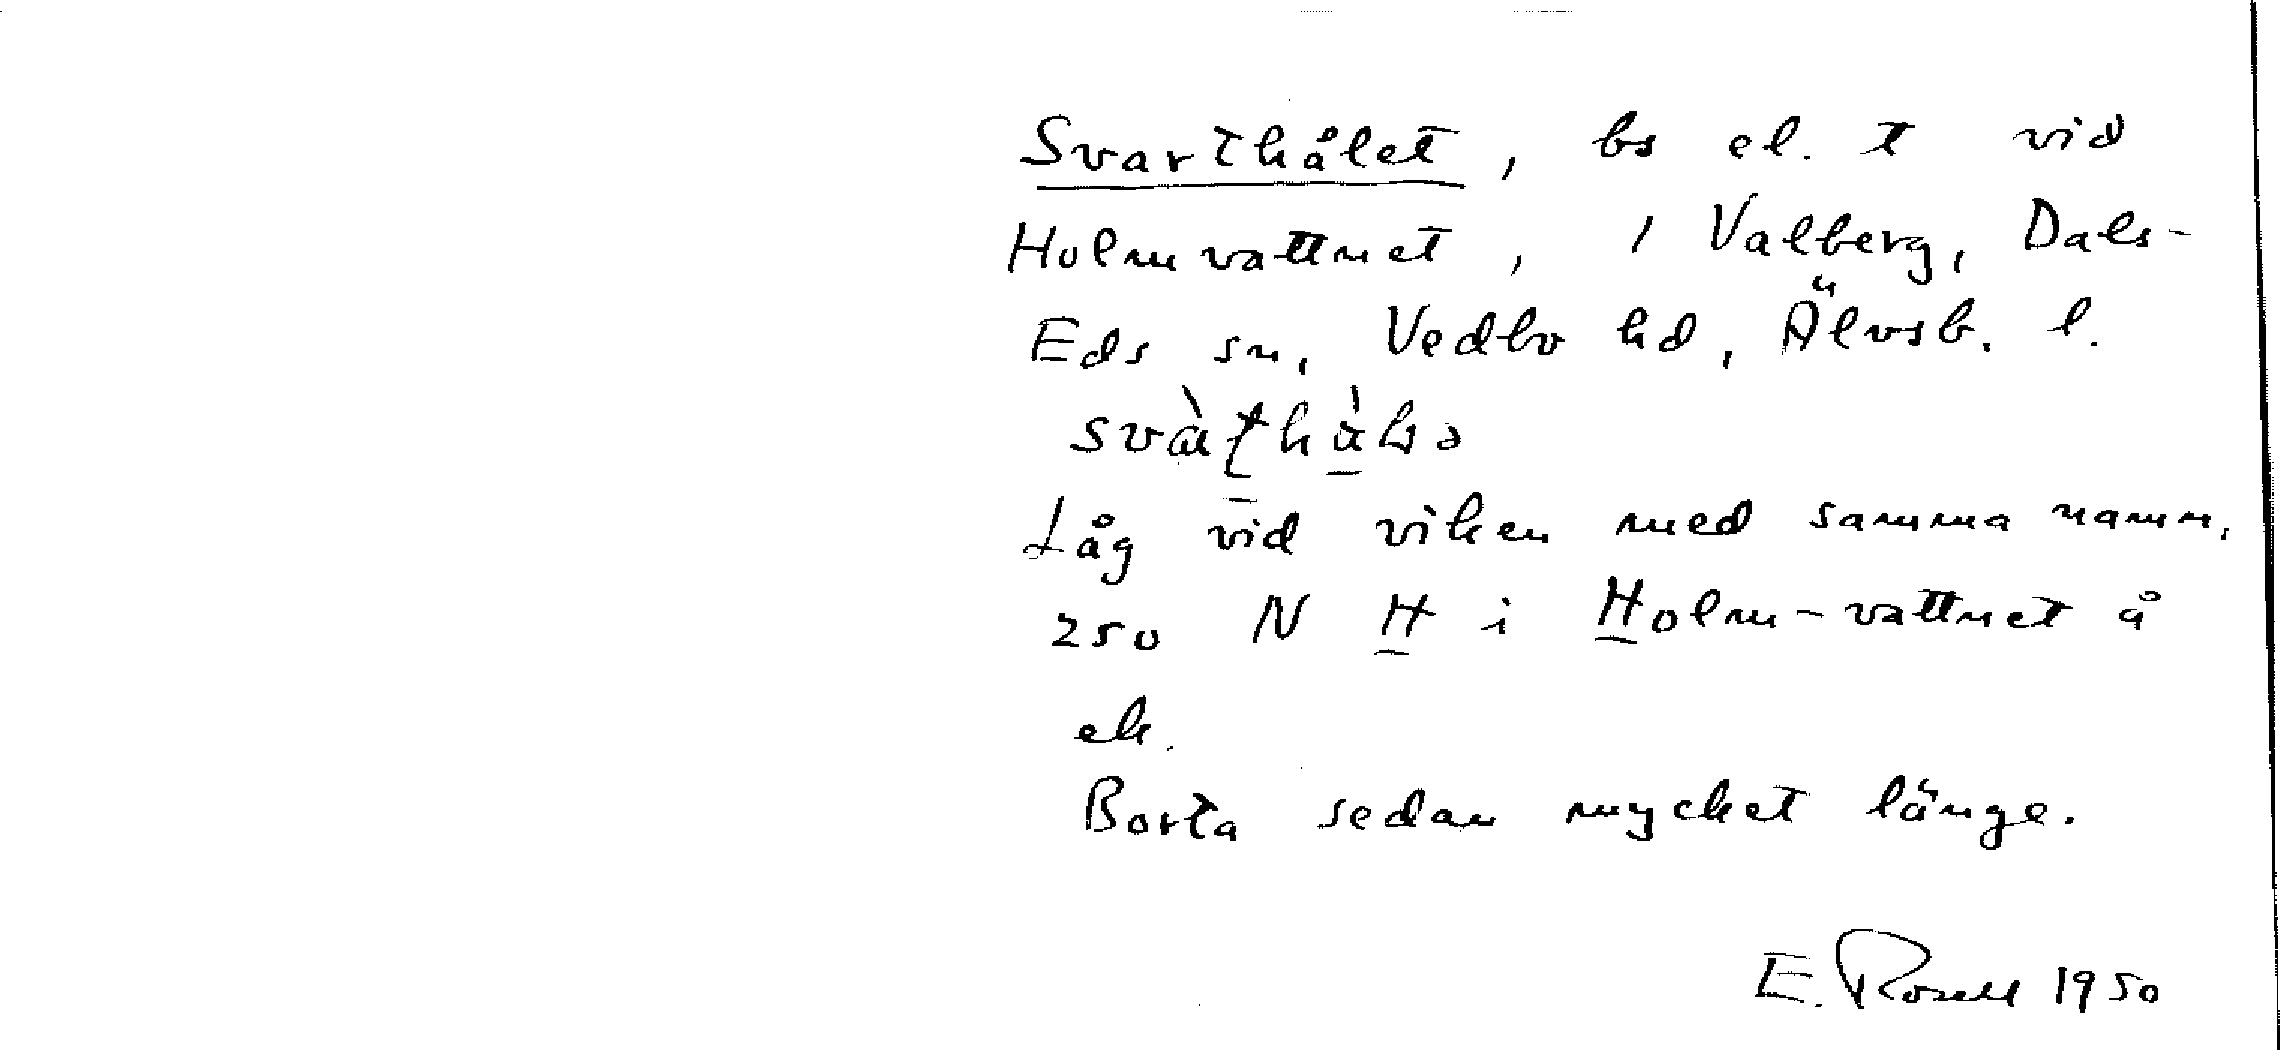 Svarthålet, bs el. t vid
Holmvattnet, 1 Valberg, Dals-
Eds sn, Vedbo hd, Älvsb. l.
Låg vid viken med samma namn,
250 N H i Holm-vattnet å
ek.
Borta sedan mycket länge.
E. Rosell 1950